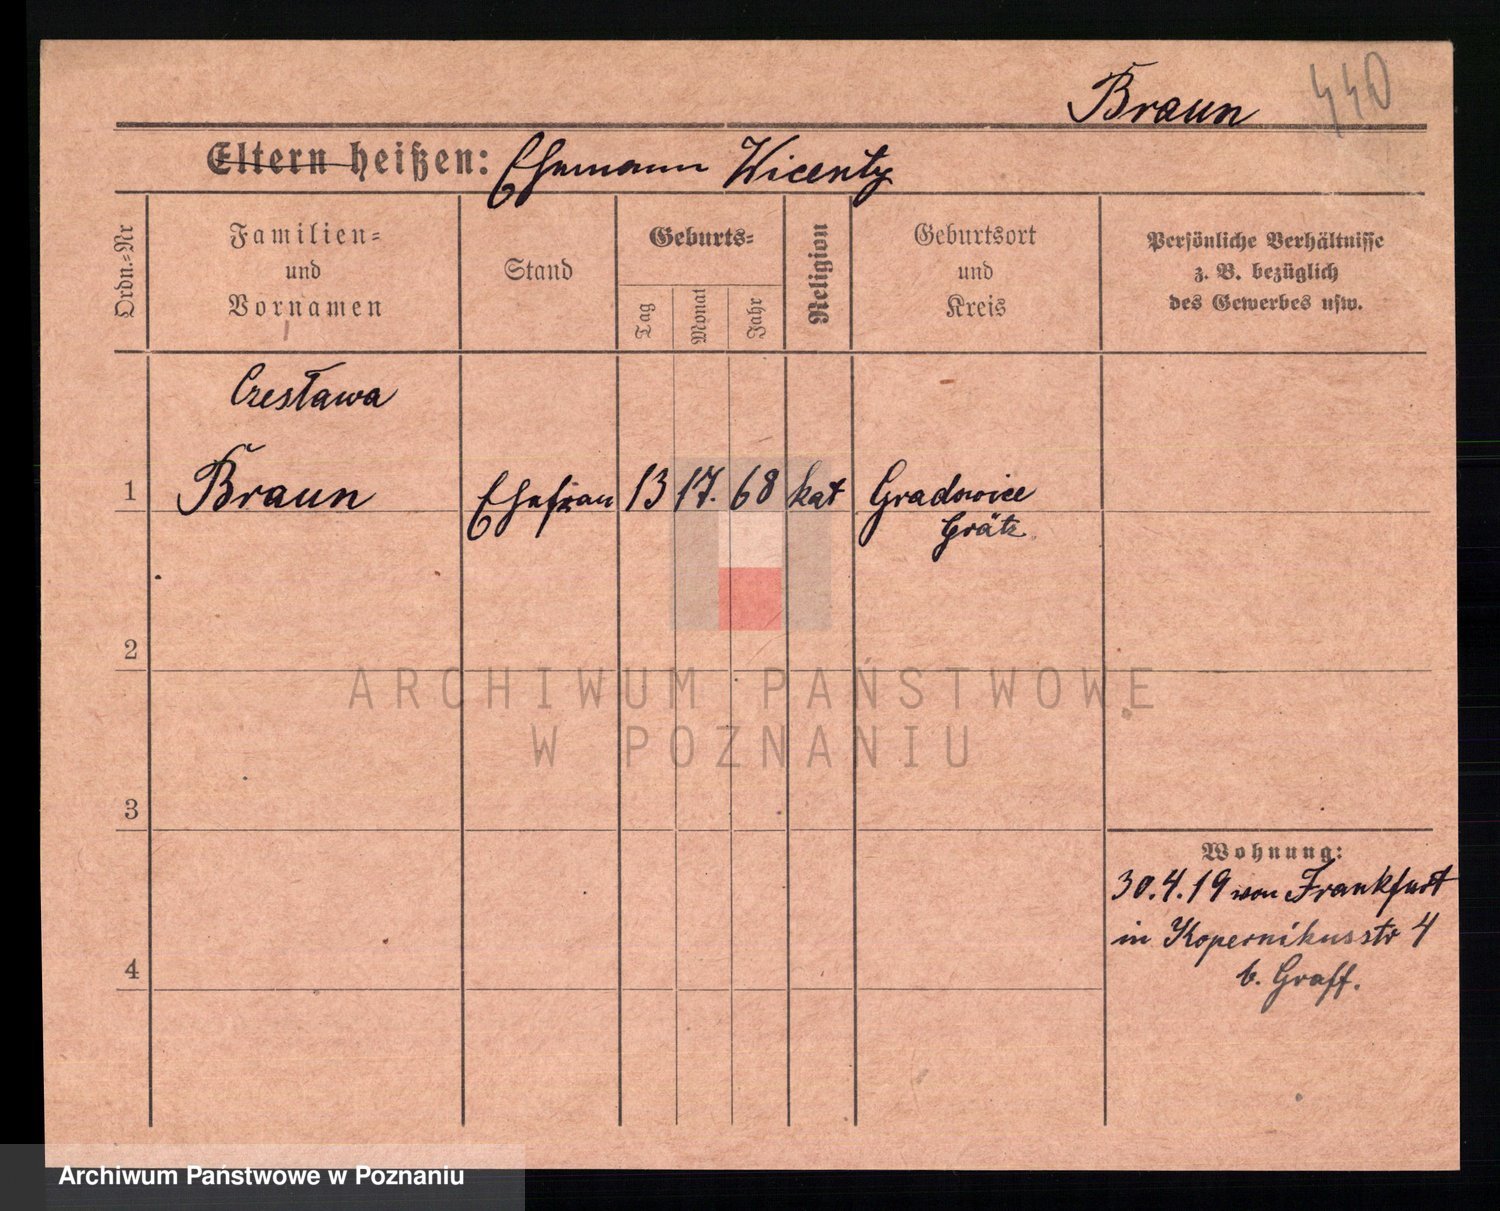 Braun 440
Eltern heißen: Ehemann Wicenty
Ordn.=Nr
Familien=
und
Vornamen
Stand
Geburts=
Tag
Monat
Jahr
Religion
Geburtsort
und
Kreis
Persönliche Verhältnisse
z. B. bezüglich
des Gewerbes usw.
Czesława
1 Braun Ehefrau 13 17. 68 kat Gradowice
Grätz
2
ARCHIWUM PAŃSTWOWE
W POZNANIU
3
Wohnung:
30.4.19 von Frankfurt
in Kopernikusstr 4
4
b. Graff.
Archiwum Państwowe w Poznaniu